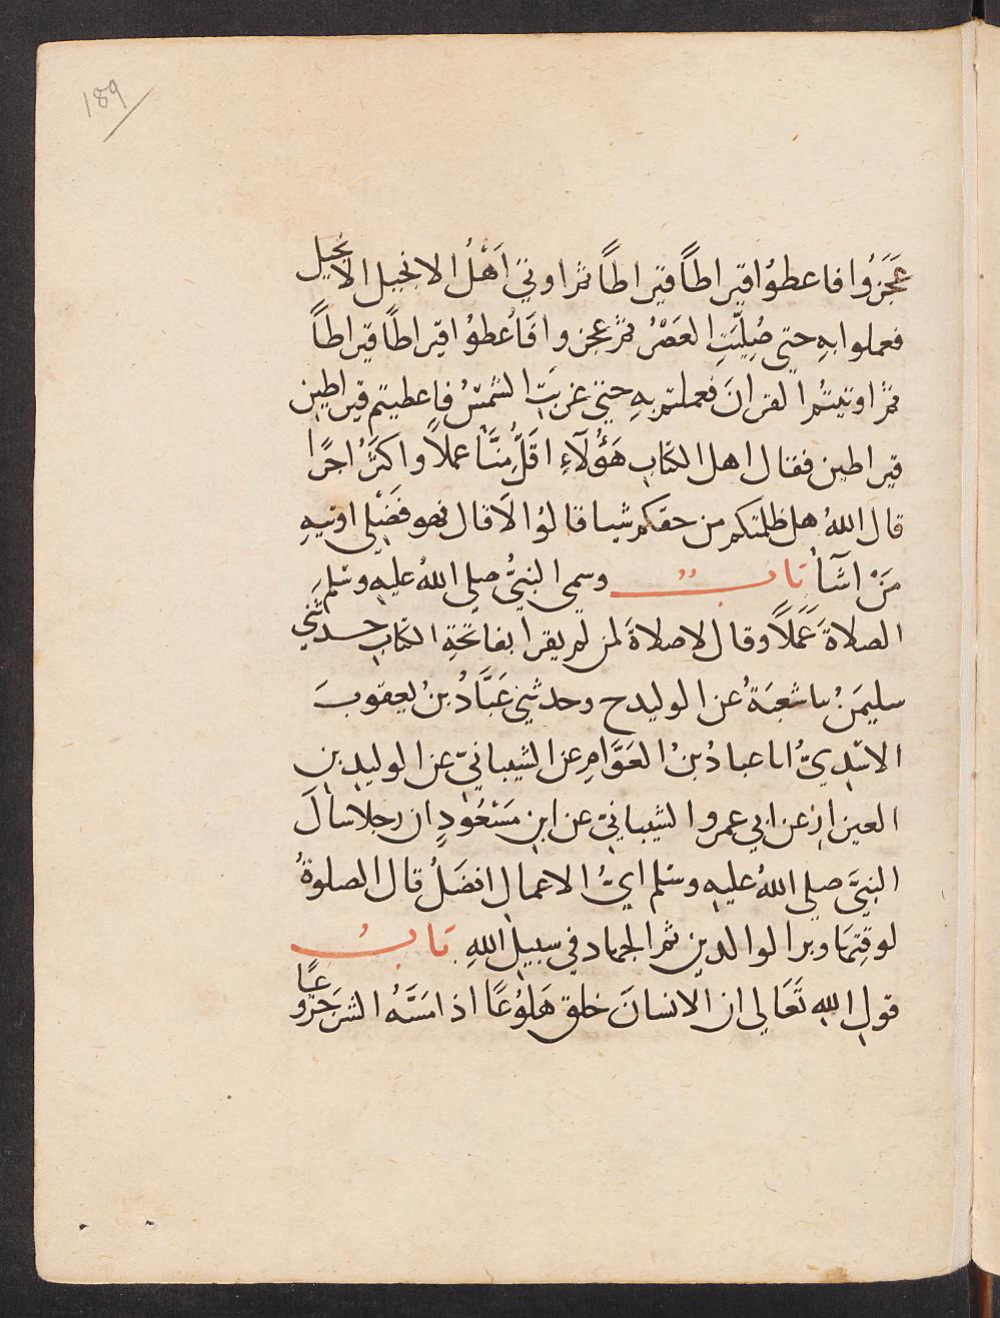 189
عَجَزُوا فاعطوُا قيراطاً قيراطاً ثم اوتيَ اَهْلُ الانجيل الانجيل
فعملوا بهِ حتي صُلِّيَتِ العَصْرُ ثم عجزوا فَاُعطوُا قيراطًا قيراطاً
ثم اوتيتُم القران فعملتم بهِ حتي غربَتِ الشمسُ فاعطيتم قيراطين
قيراطين فقال اهل الكتابِ هَؤُلَآءِ اقَلُّ مِنَّا عملاً واكثَرُ اجرًا
قال اللهُ هل ظلمتكم من حقكم شيا قالوُا لاَ قال فهو فَضْلي اوتيهِ
مَنْ اشآأ بَابٌ وسمى النبيُّ صلى اللهُ عليهِ وسَلم
الصلاةَ عَمَلاً وقال لاصلاةَ لمن لم يقرا بفاتحةِ الكتاب حدثَني
سليمَنُ نا شعبَةُ عن الوليد ح وحدثني عَبَّادُ بنُ يعقوبَ
الاسَديُّ انا عبادُ بنُ العَوَّامِ عن الشيبانيّ عن الوليد بن
العيزار عن ابي عمرو الشيبانيّ عن ابن مَسْعُودٍ ان رجلا سالَ
النبيَّ صلى اللهُ عليه وسَلم ايُّ الاعمال افضَلُ قال الصلوةُ
لوقتِهَا وبر الوالدين ثم الجهاد في سبيلِ اللهِ بَابُ
قولِ اللهِ تَعَالى ان الانسانَ خلق هَلُوعًا اذا مَسَّهُ الشر جَزُوعًا